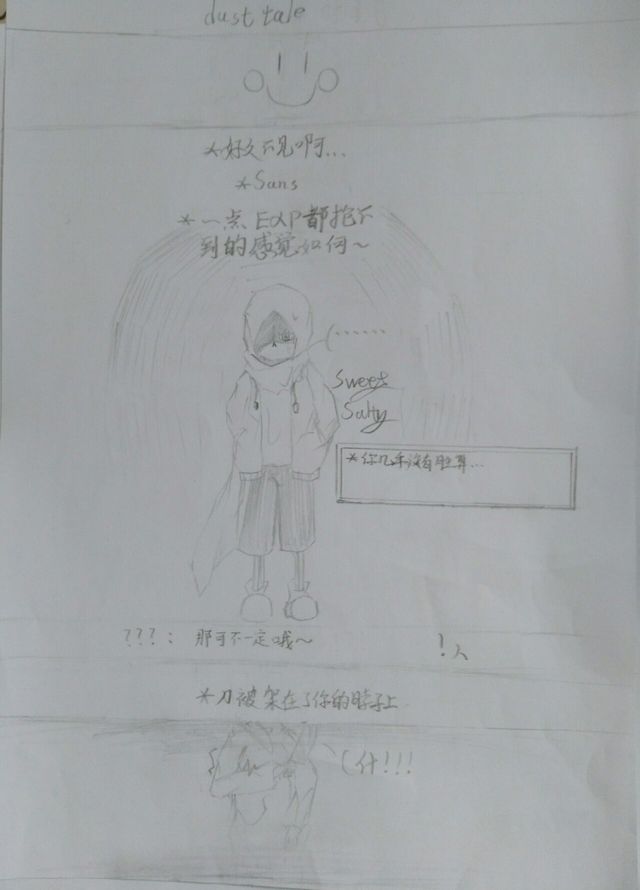 dust tale
*好久不见啊...
*Sans
*一点EXP都抢不
到的感觉如何~
(......
Sweet
Salty
*你几乎没有胜算...
???: 那可不一定哦~
!人
*刀被架在了你的脖子上
(什!!!